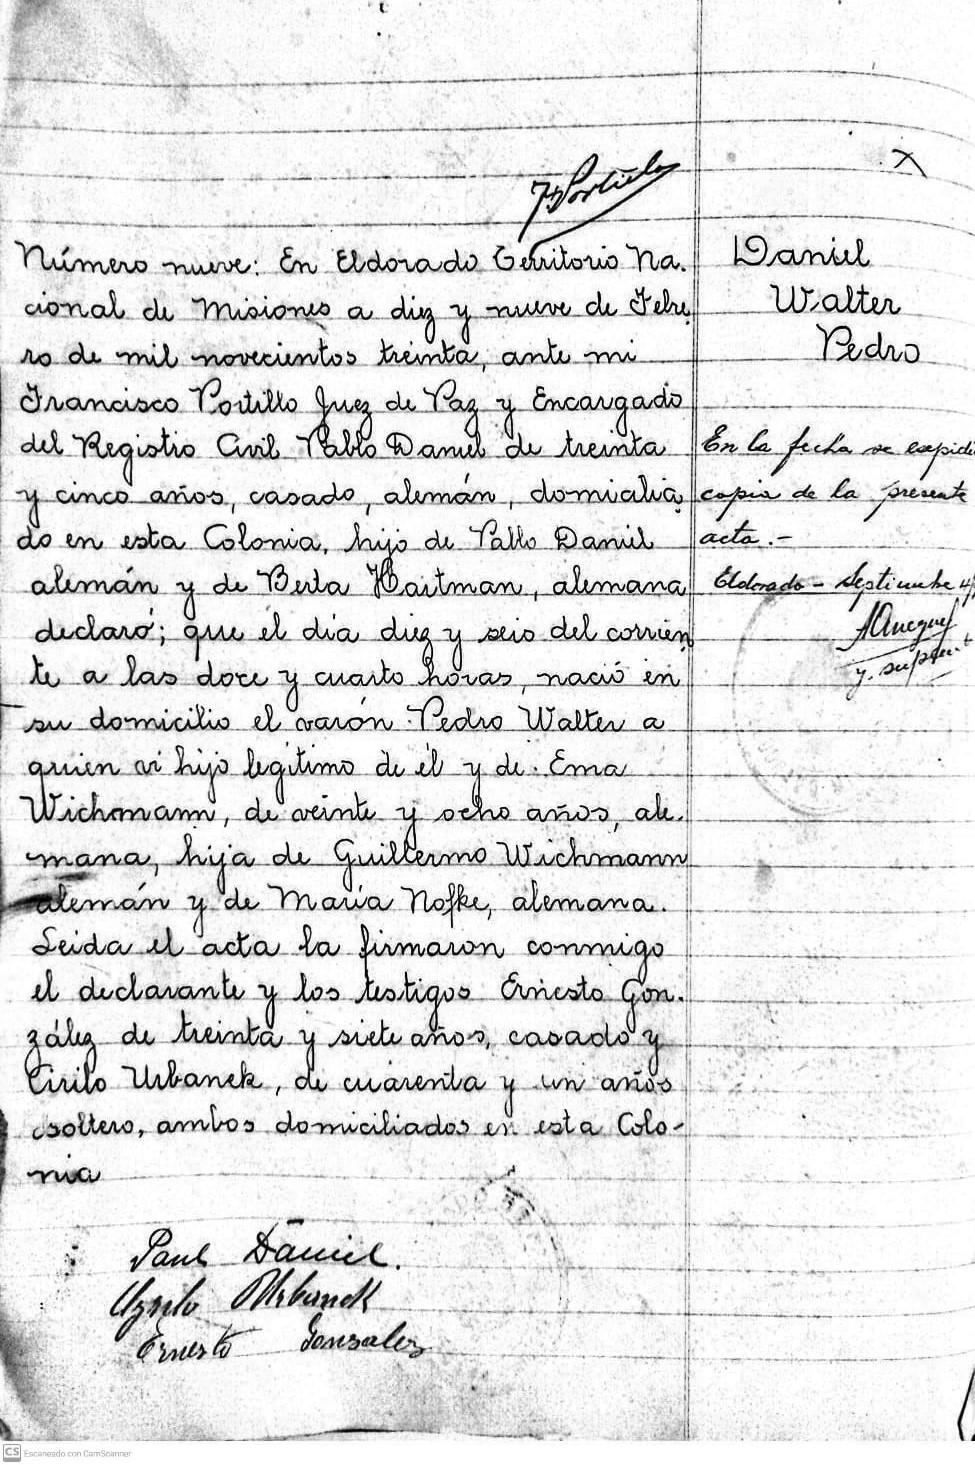 F. Portillo
Número nueve: En Eldorado Territorio Na.
cional de Misiones a diez y nueve de Febre.
ro de mil novecientos treinta, ante mi
Francisco Portillo Juez de Paz y Encargado
del Registro Civil Pablo Daniel de treinta
y cinco años, casado, alemán, domicilia.
do en esta Colonia, hijo de Pablo Daniel
alemán y de Berta Hartman, alemana
declaró; que el día diez y seis del corrien
te a las doce y cuarto horas, nació en
su domicilio el varón Pedro Walter a
quien vi hijo legítimo de él y de Ema
Wichmann, de veinte y ocho años, ale.
mana, hija de Guillermo Wichmann
alemán y de María Nofke, alemana.
Leida el acta la firmaron conmigo
el declarante y los testigos Ernesto Gon.
zález de treinta y siete años, casado y
Cirilo Urbanek, de cuarenta y un años
soltero, ambos domiciliados en esta Colo-
nia
Paul Daniel.
Urbanek
Ernesto Gonsalez
Daniel
Walter
Pedro
En la fecha se expidi
copia de la presente
acta.-
Eldorado - Septiembre 4/
CS Escaneado con CamScanner